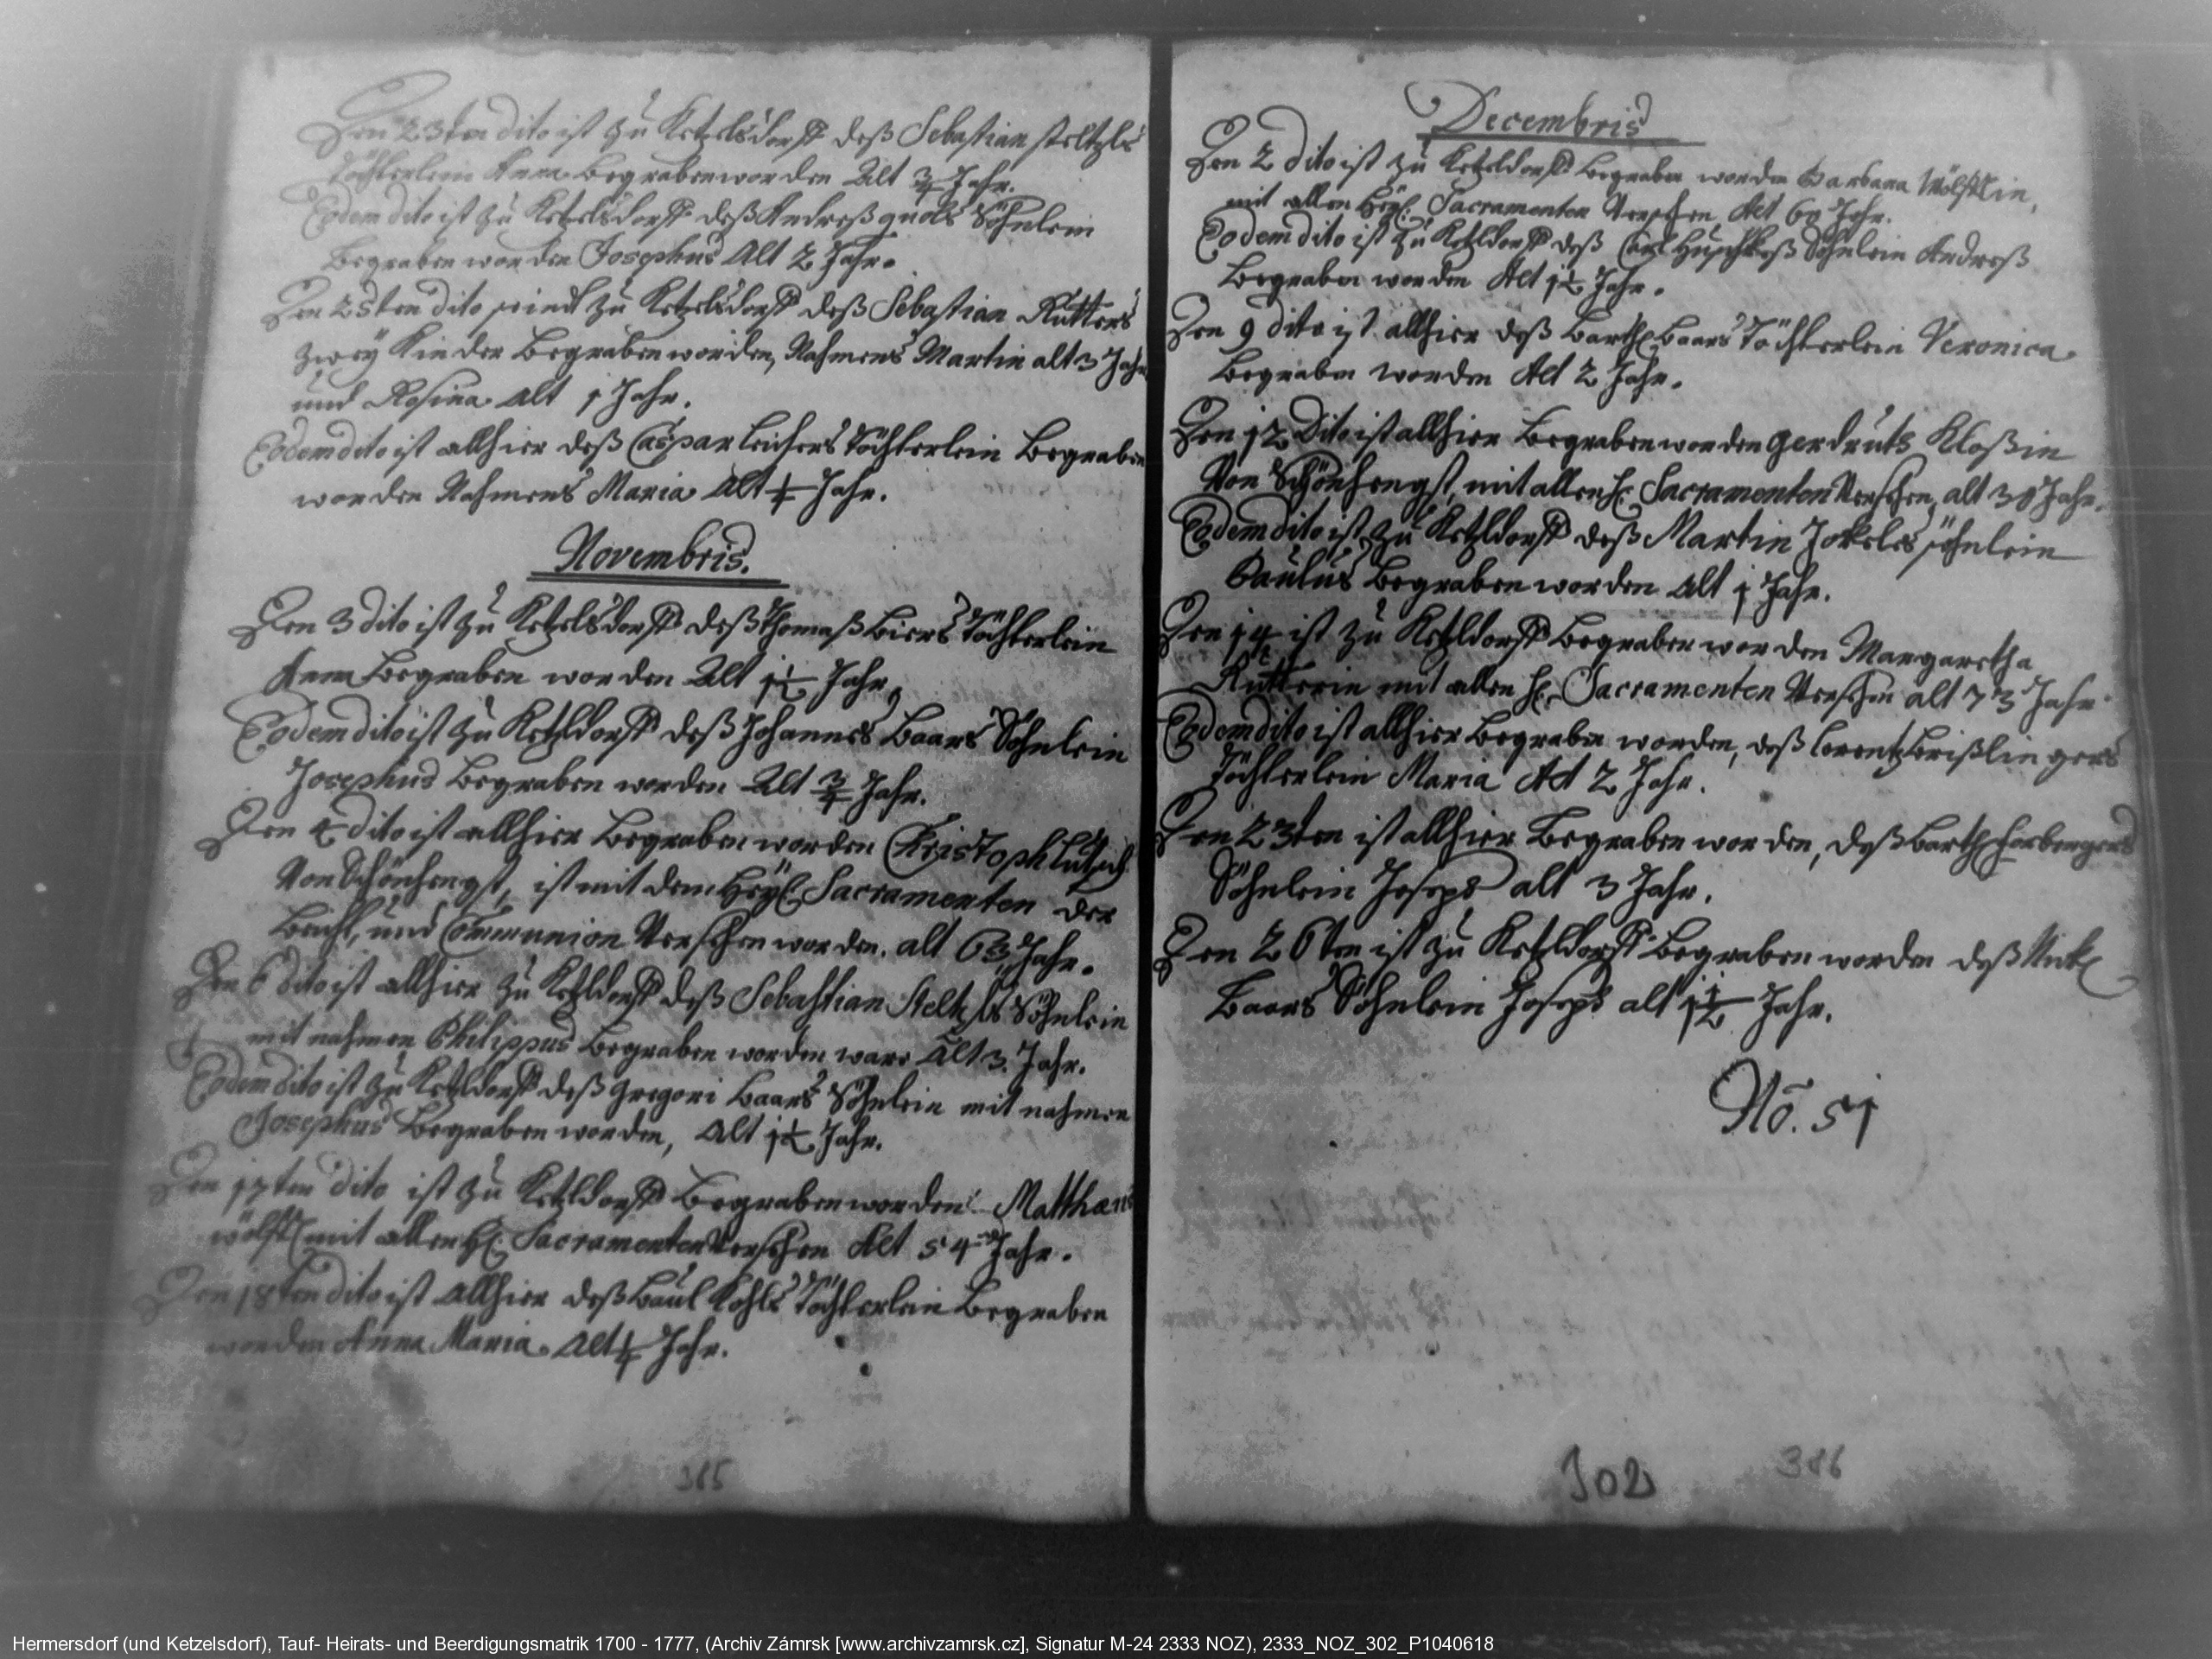 Den 23ten dito ist zu Ketzelsdorff deß Sebastian steltzls
Töchterlein Anna Begraben worden Alt 3/4 Jahr.
Eodem dito ist zu Ketzelsdorff deß Andreß Söhnlein
Begraben worden Josephus Alt 2 Jahr.
Den 25ten dito seindt zu Ketzelsdorff deß Sebastian Rutters
zweÿ Kinder Begraben worden, Nahmens Martin alt 3 Jahr
und Rosina Alt 1 Jahr.
Eodem dito ist allhier deß Caspar Leichers Töchterlein Begraben
worden Nahmens Maria Alt 1/4 Jahr.
Novembris.
Den 3 dito ist zu Ketzelsdorff deß Thomaß Biers Töchterlein
Anna Begraben worden Alt 1 1/2 Jahr.
Eodem dito ist zu Ketzldorff deß Johannes Baars Söhnlein
Josephus Begraben worden Alt 3/4 Jahr.
Den 4 dito ist allhier Begraben worden Christoph
Von Schönhengst, ist mit dem Heÿl Sacramenten der
Beicht, und Communion Versehen worden. alt 63 Jahr.
Den 6 dito ist allhier zu Ketzldorff deß Sebasttian Steltzls Söhnlein
mit nahmen Philippus Begraben worden ware Alt 3. Jahr.
Eodem dito ist zu Ketzldorff deß gregori Baars Söhnlein mit nahmen
Josephus Begraben worden, Alt 1 1/2 Jahr.
Den 17ten dito ist zu Ketzldorff Begraben worden Matthæus
wölffl mit allen Hl Sacramenten Versehen Alt 54 Jahr.
Den 18ten dito ist allhier deß Baul Kohls Töchterlein Begraben
worden Anna Maria Alt 1/4 Jahr.
385
Decembris
Den 2 dito ist zu Ketzldorff Begraben worden Barbara Wölfflin,
mit allen Heÿl. Sacramenten Versehen Alt 60 Jahr.
Eodem dito ist zu Ketzldorff deß Carl Söhnlein Andreß
Begraben worden Alt 1 1/2 Jahr.
Den 9 dito ist allhier deß Barthl Baars Töchterlein Veronica
Begraben worden Alt 2 Jahr.
Den 12 Dito ist allhier Begraben worden gerdruts Kloßin
Von Schönhengst, mit allen H. Sacramenten Versehen, alt 30 Jahr.
Eodem dito ist zu Ketzldorff deß Martin Jokeles söhnlein
Paulus Begraben worden Alt 1 Jahr.
Den 14 ist zu Ketzldorff Begraben worden Margaretha
Rutterin mit allen H. Sacramenten Versehen alt 73 Jahr
Eodem dito ist allhier Begraben worden, deß Lorentz Brißlingers
Töchterlein Maria Alt 2 Jahr.
Den 23ten ist allhier Begraben worden, deß Barthl
Söhnlein Joseph alt 3 Jahr.
Den 26ten ist zu Ketzldorff Begraben worden deß Nickl
Baars Söhnlein Joseph alt 1 1/2 Jahr.
No. 51
302 386
Hermersdorf (und Ketzelsdorf), Tauf- Heirats- und Beerdigungsmatrik 1700 - 1777, (Archiv Zámrsk [www.archivzamrsk.cz], Signatur M-24 2333 NOZ), 2333_NOZ_302_P1040618